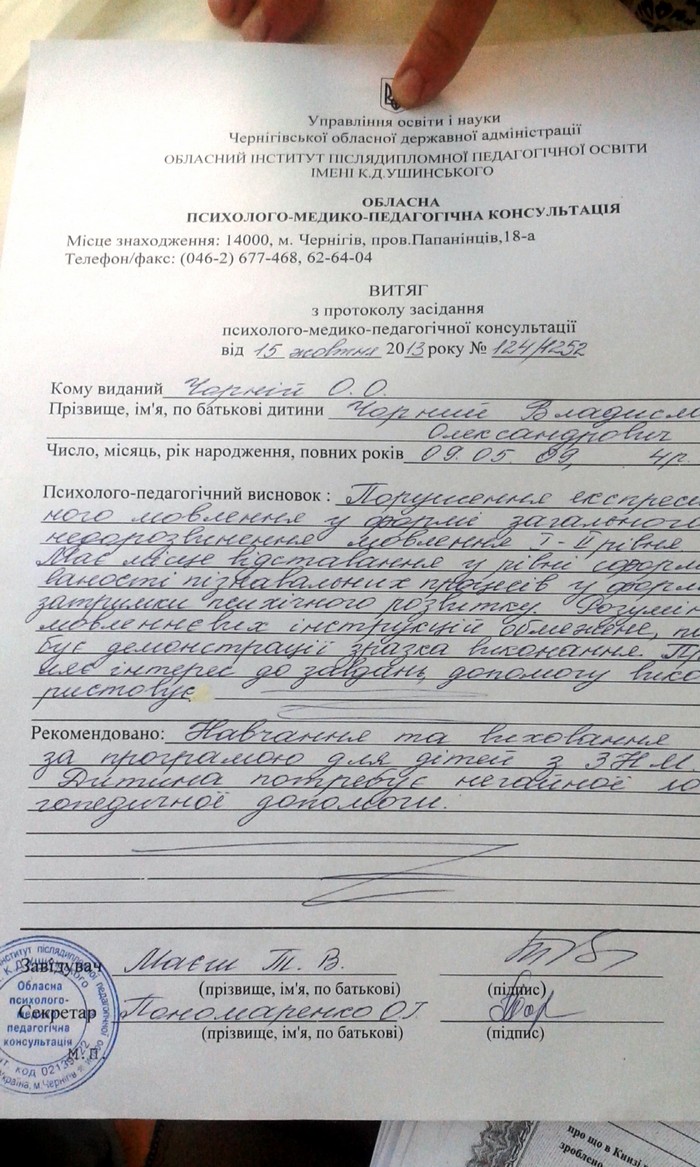 Управління освіти і науки
Чернігівської обласної державної адміністрації
ОБЛАСНИЙ ІНСТИТУТ ПІСЛЯДИПЛОМНОЇ ПЕДАГОГІЧНОЇ ОСВІТИ
ІМЕНІ К.Д.УШИНСЬКОГО
ОБЛАСНА
ПСИХОЛОГО-МЕДИКО-ПЕДАГОГІЧНА КОНСУЛЬТАЦІЯ
Місце знаходження: 14000, м. Чернігів, пров.Папанінців,18-а
Телефон/факс: (046-2) 677-468, 62-64-04
ВИТЯГ
з протоколу засідання
психолого-медико-педагогічної консультації
від 15 жовтня 2013 року № 124/1252
Кому виданий Чорній О.О.
Прізвище, ім'я, по батькові дитини Чорний Владисл
Олександрович
Число, місяць, рік народження, повних років 09.05.09, 4р.
Психолого-педагогічний висновок : Порушення експрес
ного мовлення у формі загального
недорозвинення мовлення I-II рівня
Має місце відставання у рівні сформ
ваності пізнавальних процесів у форм
затримки психічного розвитку. Розумі
мовленнєвих інструкцій обмежене, п
бує демонстрації зразка виконання. П
ляє інтерес до завдань, допомогу вико
ристовує
Рекомендовано: Навчання та виховання
за програмою для дітей з ЗНМ
Дитина потребує негайної ло
гопедичної допомоги.
Завідувач Т. В.
(прізвище, ім'я, по батькові) (підпис)
Секретар Пономаренко О.
(прізвище, ім'я, по батькові) (підпис)
М.П.
Обласна
психолого-
медико-
педагогічна
консультація
про що в Книзі
зроблено